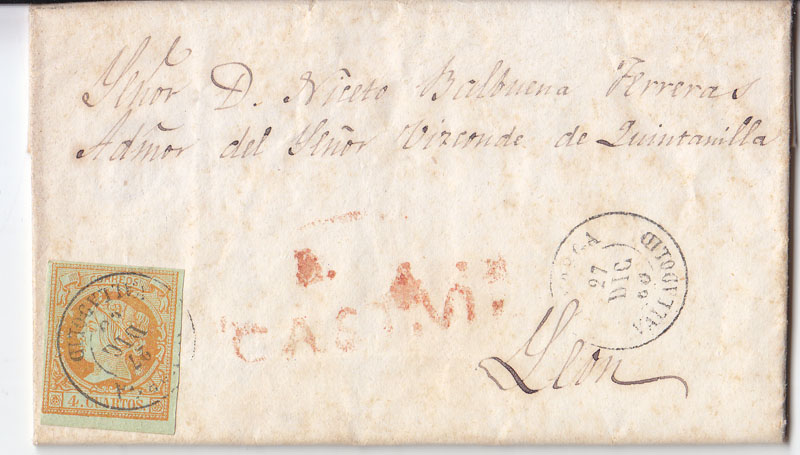 Señor D. Niceto Balbuena Ferreras
Admor del Señor Vizconde de Quintanilla
León
VALLADOLID
27
DIC
60
CORREOS
4. CUARTOS
VALLADOLID
27
DIC
60